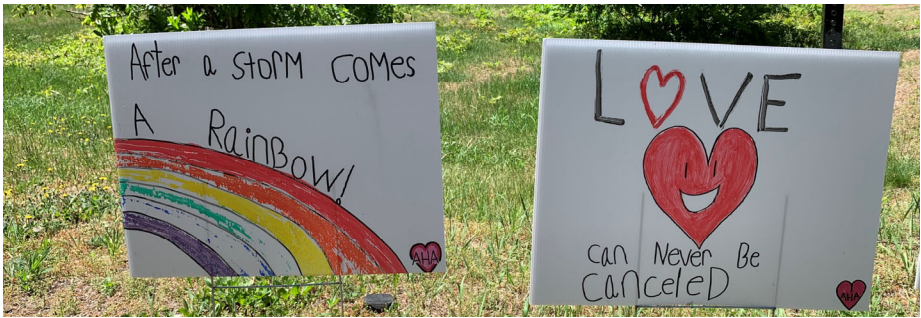 After a storm comes
A Rainbow!
AHA
LOVE
can Never Be
canceled
AHA